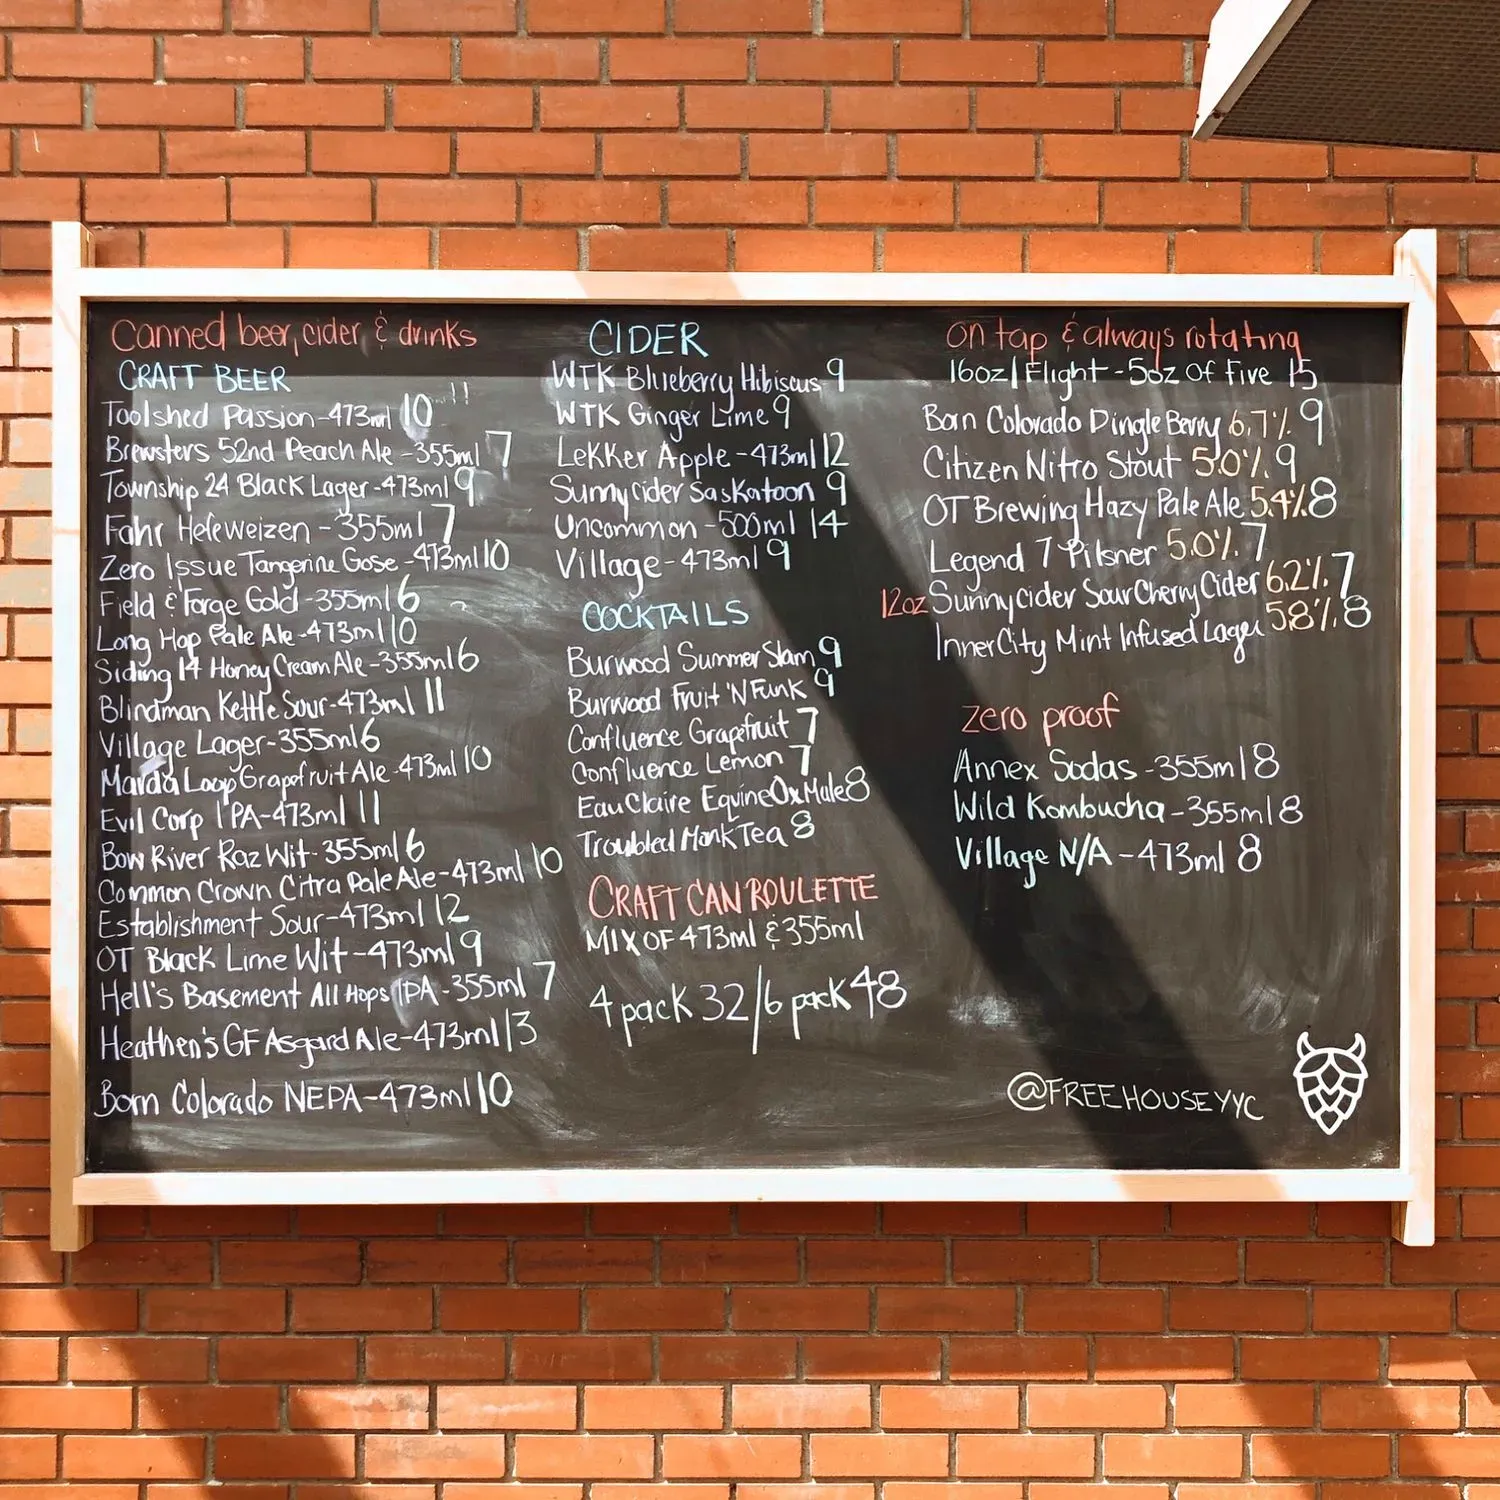 Canned beer, cider, & drinks
CRAFT BEER
Toolshed Passion-473ml 10
Brewsters 52nd Peach Ale -355ml 7
Township 24 Black Lager-473ml 9
Fahr Hefeweizen - 355ml 7
Zero Issue Tangerine Gose -473ml 10
Field & Forge Gold-355ml 6
Long Hop Pale Ale-473ml 10
Siding 14 Honey Cream Ale-355ml 6
Blindman Kettle Sour-473ml 11
Village Lager-355ml 6
Marda Loop Grapefruit Ale-473ml 10
Evil Corp IPA-473ml 11
Bow River Raz Wit-355ml 6
Common Crown Citra Pale Ale-473ml 10
Establishment Sour-473ml 12
OT Black Lime Wit-473ml 9
Hell's Basement All Hops IPA-355ml 7
Heathen's GF Asgard Ale-473ml 13
Born Colorado NEPA-473ml 10
CIDER
WTK Blueberry Hibiscus 9
WTK Ginger Lime 9
LeKKer Apple-473ml 12
Sunnycider Saskatoon 9
Uncommon -500ml 14
Village-473ml 9
COCKTAILS
Burwood Summer Slam 9
Burwood Fruit 'N Funk 9
Confluence Grapefruit 7
Confluence Lemon 7
Eau Claire Equine Ox Mule 8
Troubled Monk Tea 8
CRAFT CAN ROULETTE
MIX OF 473ml & 355ml
4 pack 32/6 pack 48
on tap & always rotating
16oz/Flight -5oz of Five 15
Born Colorado Dingle Berry 6.7% 9
Citizen Nitro Stout 5.0% 9
OT Brewing Hazy Pale Ale 5.4% 8
Legend 7 Pilsner 5.0% 7
12oz Sunnycider Sour Cherry Cider 6.2% 7
InnerCity Mint Infused Lager 5.8% 8
zero proof
Annex Sodas -355ml 8
Wild Kombucha -355ml 8
Village N/A -473ml 8
@FREEHOUSEYYC